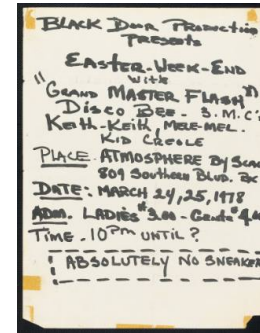 BLACK DOOR PRODUCTION
PRESENTS
EASTER-WEEK-END
WITH
"GRAND MASTER FLASH"
DISCO BEE - 3. M.C'
KEITH-KEITH, MELE-MEL.
KID CREOLE
PLACE. ATMOSPHERE BY
809 SOUTHERN BLVD. BX
DATE: MARCH 24,25,1978
ADM. LADIES $3.00 - GENTS $4.00
TIME. 10PM UNTIL?
ABSOLUTELY NO SNEAKER